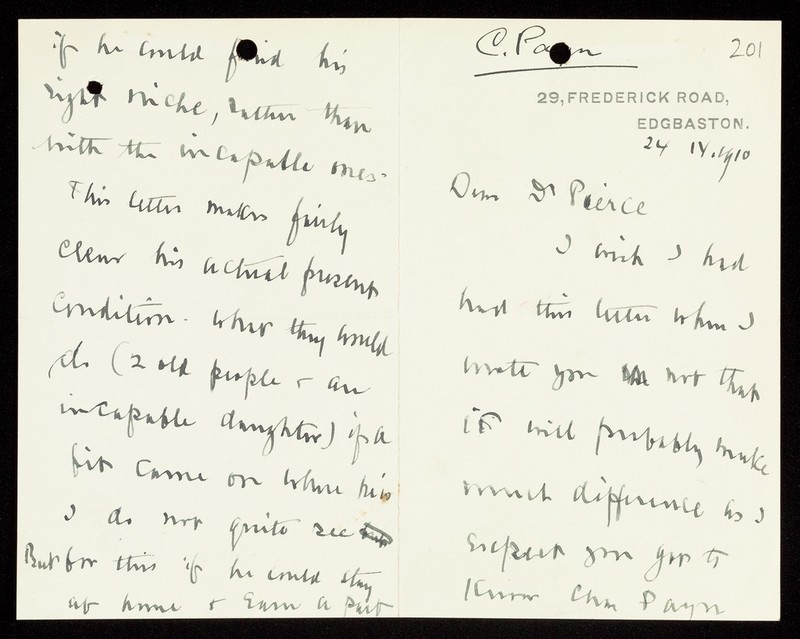 C. Payn
201
29, FREDERICK ROAD,
EDGBASTON.
24 IX. 1910
Dear Dr Pierce
I wish I had
had this letter when I
wrote you not that
it will probably make
much difference as I
expect you got to
know Chas Payn
if he could find his
right niche, rather than
with the incapable ones.
This letter makes fairly
clear his actual present
condition. What they would
do (2 old people & an
incapable daughter) if a
fit came on where he is
I do not quite see
But for this if he could stay
at home & earn a part